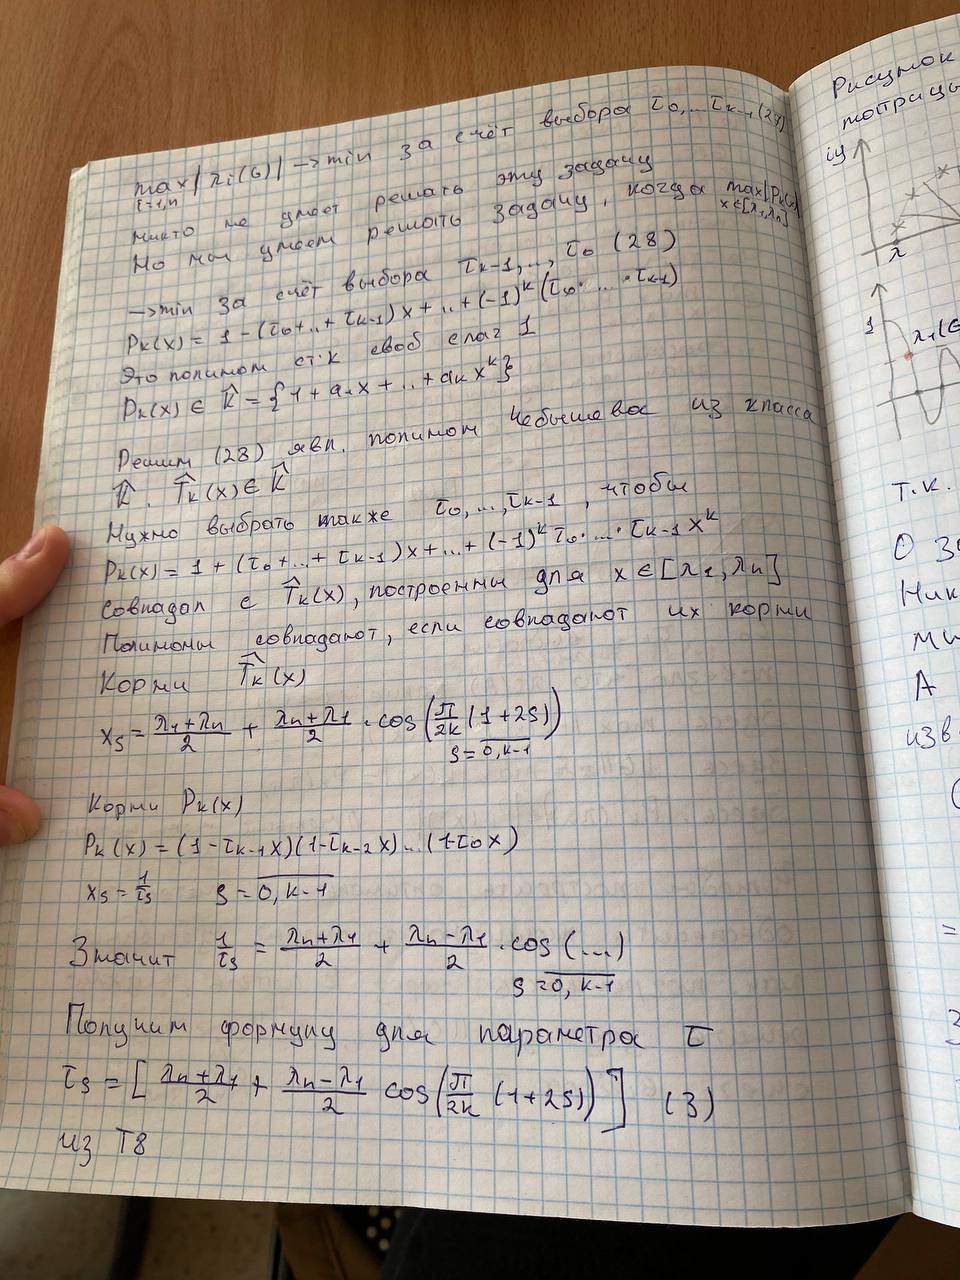 max |λi(G)| → min за счёт выбора τ0,...τk-1 (27)
i=1,n
никто не умеет решать эту задачу
Но мы умеем решать задачу, когда max|Pk(x)|
x∈[λ1,λn]
→ min за счёт выбора τk-1,..,τ0 (28)
Pk(x) = 1 - (τ0+..+τk-1)x+..+(-1)^k(τ0·...·τk-1)
Это полином ст.k своб слаг 1
Pk(x) ∈ K̂ = {1+a1x+..+akx^k}
Решим (28) явл. полином Чебышева из класса
K̂. T̂k(x)∈K̂
Нужно выбрать такие τ0,...,τk-1, чтобы
Pk(x) = 1 + (τ0+...+τk-1)x+...+(-1)^k τ0·...·τk-1 x^k
совпадал с T̂k(x), построенны для x∈[λ1,λn]
Полиномы совпадают, если совпадают их корни
Корни T̂k(x)
xs = (λ1+λn)/2 + (λn+λ1)/2 · cos(π/2k (1+2s))
s=0,k-1
Корни Pk(x)
Pk(x) = (1-τk-1x)(1-τk-2x)...(1-τ0x)
xs = 1/τs s = 0,k-1
Значит 1/τs = (λn+λ1)/2 + (λn-λ1)/2 · cos(...)
s=0,k-1
Получим формулу для параметра τ
τs = [(λn+λ1)/2 + (λn-λ1)/2 cos(π/2k (1+2s))] (3)
из T8
Рисунок
iy
λ
1
т.к.
О
Ник
ми
А
изв
=